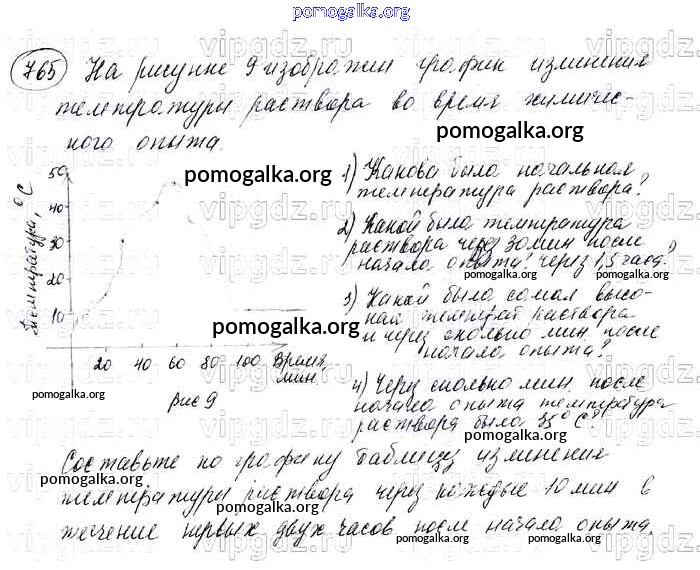 pomogalka.org
765 На рисунке 9 изображен график изменения
температуры раствора во время химичес-
кого опыта.
pomogalka.org
pomogalka.org
Температура, °C
50
40
30
20
10
20 40 60 80 100 Время, мин.
рис 9
pomogalka.org
pomogalka.org
1) Какова была начальная
температура раствора?
2) Какой была температура
раствора через 30 мин после
начала опыта? через 1,5 часа?
pomogalka.org
3) Какой была самая высо-
кая температ раствора
и через сколько мин. после
начала опыта?
pomogalka.org
4) Через сколько мин. после
начала опыта температура
раствора была 35° С?
pomogalka.org
Составьте по графику таблицу изменения
pomogalka.org
температуры раствора через каждые 10 мин в
течение первых двух часов после начала опыта.
pomogalka.org
pomogalka.org